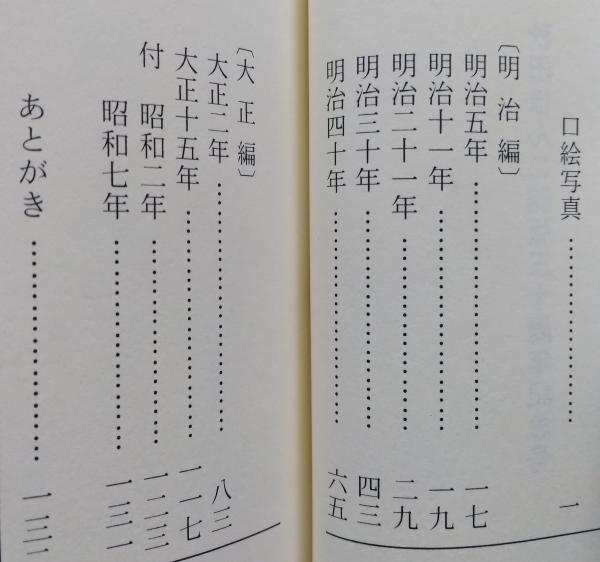 口絵写真……………………一
〔明治編〕
明治五年……………………一七
明治十一年……………………一九
明治二十一年……………………二九
明治三十年……………………四三
明治四十年……………………六五
〔大正編〕
大正二年……………………八三
大正十五年……………………一一七
付 昭和二年……………………一二三
昭和七年……………………一三一
あとがき……………………